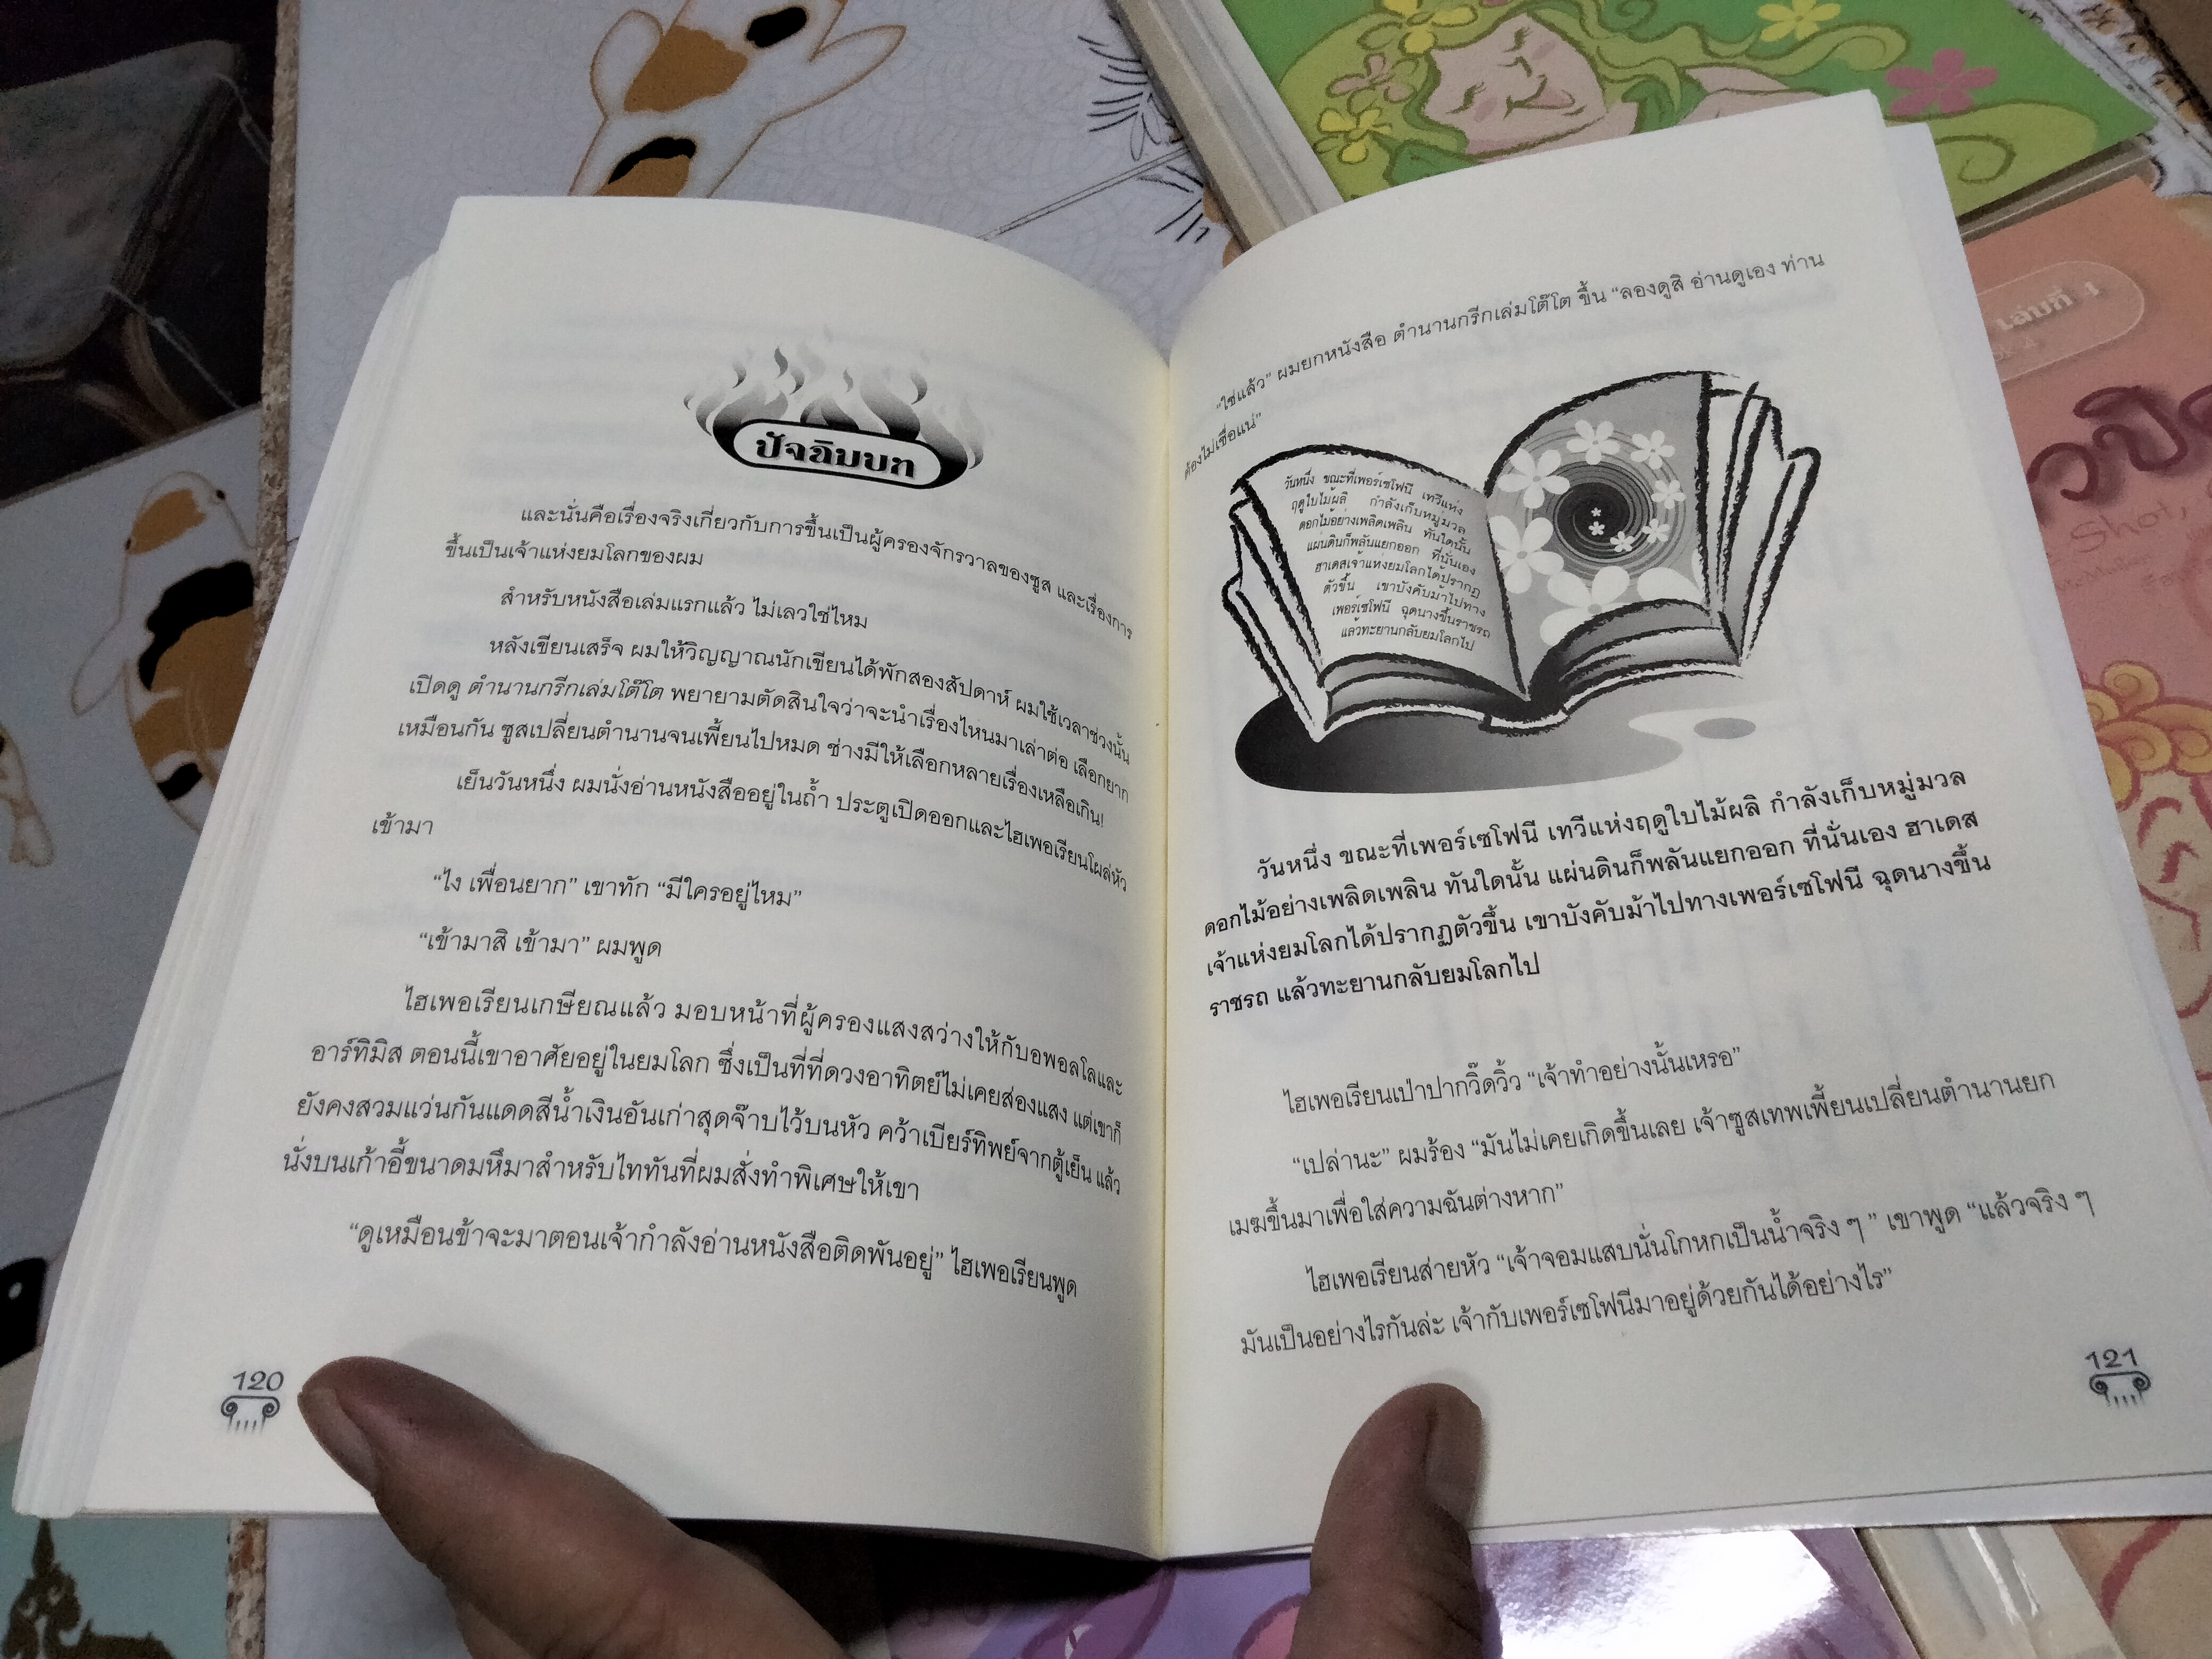 ปัจฉิมบท
และนั่นคือเรื่องจริงเกี่ยวกับการขึ้นเป็นผู้ครองจักรวาลของซูส และเรื่องการ
ขึ้นเป็นเจ้าแห่งยมโลกของผม
สำหรับหนังสือเล่มแรกแล้ว ไม่เลวใช่ไหม
หลังเขียนเสร็จ ผมให้วิญญาณนักเขียนได้พักสองสัปดาห์ ผมใช้เวลาช่วงนั้น
เปิดดู ตำนานกรีกเล่มโต๊โต พยายามตัดสินใจว่าจะนำเรื่องไหนมาเล่าต่อ เลือกยาก
เหมือนกัน ซูสเปลี่ยนตำนานจนเพี้ยนไปหมด ช่างมีให้เลือกหลายเรื่องเหลือเกิน!
เย็นวันหนึ่ง ผมนั่งอ่านหนังสืออยู่ในถ้ำ ประตูเปิดออกและไฮเพอเรียนโผล่หัว
เข้ามา
“ไง เพื่อนยาก” เขาทัก “มีใครอยู่ไหม”
“เข้ามาสิ เข้ามา” ผมพูด
ไฮเพอเรียนเกษียณแล้ว มอบหน้าที่ผู้ครองแสงสว่างให้กับอพอลโลและ
อาร์ทิมิส ตอนนี้เขาอาศัยอยู่ในยมโลก ซึ่งเป็นที่ที่ดวงอาทิตย์ไม่เคยส่องแสง แต่เขาก็
ยังคงสวมแว่นกันแดดสีน้ำเงินอันเก่าสุดจ๊าบไว้บนหัว คว้าเบียร์ทิพย์จากตู้เย็น แล้ว
นั่งบนเก้าอี้ขนาดมหึมาสำหรับไททันที่ผมสั่งทำพิเศษให้เขา
“ดูเหมือนข้าจะมาตอนเจ้ากำลังอ่านหนังสือติดพันอยู่” ไฮเพอเรียนพูด
120
“ใช่แล้ว” ผมยกหนังสือ ตำนานกรีกเล่มโต๊โต ขึ้น “ลองดูสิ อ่านดูเอง ท่าน
ต้องไม่เชื่อแน่”
วันหนึ่ง ขณะที่เพอร์เซโฟนี เทวีแห่ง
ฤดูใบไม้ผลิ กำลังเก็บหมู่มวล
ดอกไม้อย่างเพลิดเพลิน ทันใดนั้น
แผ่นดินก็พลันแยกออก ที่นั่นเอง
ฮาเดสเจ้าแห่งยมโลกได้ปรากฏ
ตัวขึ้น เขาบังคับม้าไปทาง
เพอร์เซโฟนี ฉุดนางขึ้นราชรถ
แล้วทะยานกลับยมโลกไป
วันหนึ่ง ขณะที่เพอร์เซโฟนี เทวีแห่งฤดูใบไม้ผลิ กำลังเก็บหมู่มวล
ดอกไม้อย่างเพลิดเพลิน ทันใดนั้น แผ่นดินก็พลันแยกออก ที่นั่นเอง ฮาเดส
เจ้าแห่งยมโลกได้ปรากฏตัวขึ้น เขาบังคับม้าไปทางเพอร์เซโฟนี ฉุดนางขึ้น
ราชรถ แล้วทะยานกลับยมโลกไป
ไฮเพอเรียนเป่าปากวิ๊ดวิ้ว “เจ้าทำอย่างนั้นเหรอ”
“เปล่านะ” ผมร้อง “มันไม่เคยเกิดขึ้นเลย เจ้าซูสเทพเพี้ยนเปลี่ยนตำนานยก
เมฆขึ้นมาเพื่อใส่ความฉันต่างหาก”
ไฮเพอเรียนส่ายหัว “เจ้าจอมแสบนั่นโกหกเป็นน้ำจริง ๆ ” เขาพูด “แล้วจริง ๆ
มันเป็นอย่างไรกันล่ะ เจ้ากับเพอร์เซโฟนีมาอยู่ด้วยกันได้อย่างไร”
121
เล่มที่ 1
Shot,